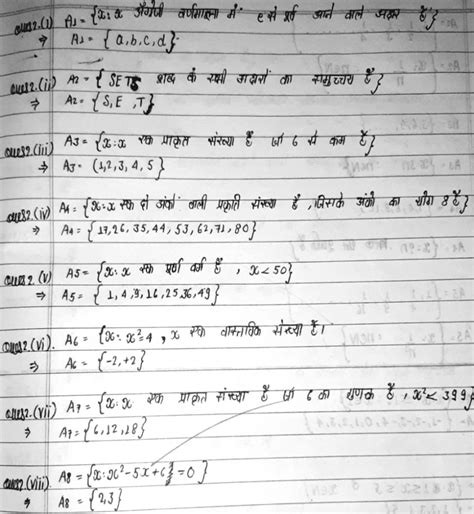 ques2.(i) A1 = {x:x अंग्रेजी वर्णमाला में e से पूर्व आने वाले अक्षर हैं}
⇒ A1 = {a,b,c,d}
ques2.(ii) A2 = { SETS शब्द के सभी अक्षरों का समुच्चय है}
⇒ A2 = {S,E,T}
ques2.(iii) A3 = {x:x एक प्राकृत संख्या है जो 6 से कम है}
⇒ A3 = (1,2,3,4,5}
ques2.(iv) A4 = {x:x एक दो अंकों वाली प्रकृति संख्या है, जिसके अंको का योग 8 है}
⇒ A4 = {17,26,35,44,53,62,71,80}
ques2.(v) A5 = {x:x एक पूर्ण वर्ग है, x<50}
⇒ A5 = {1,4,9,16,25,36,49}
ques2.(vi). A6 = {x:x²=4, x एक वास्तविक संख्या है।
⇒ A6 = {-2,+2}
ques2.(vii) A7 = {x:x एक प्राकृत संख्या है जो 6 का गुणक है, x²<399}
⇒ A7 = {6,12,18}
ques2.(viii) A8 = {x:x²-5x+6}=0}
⇒ A8 = {2,3}